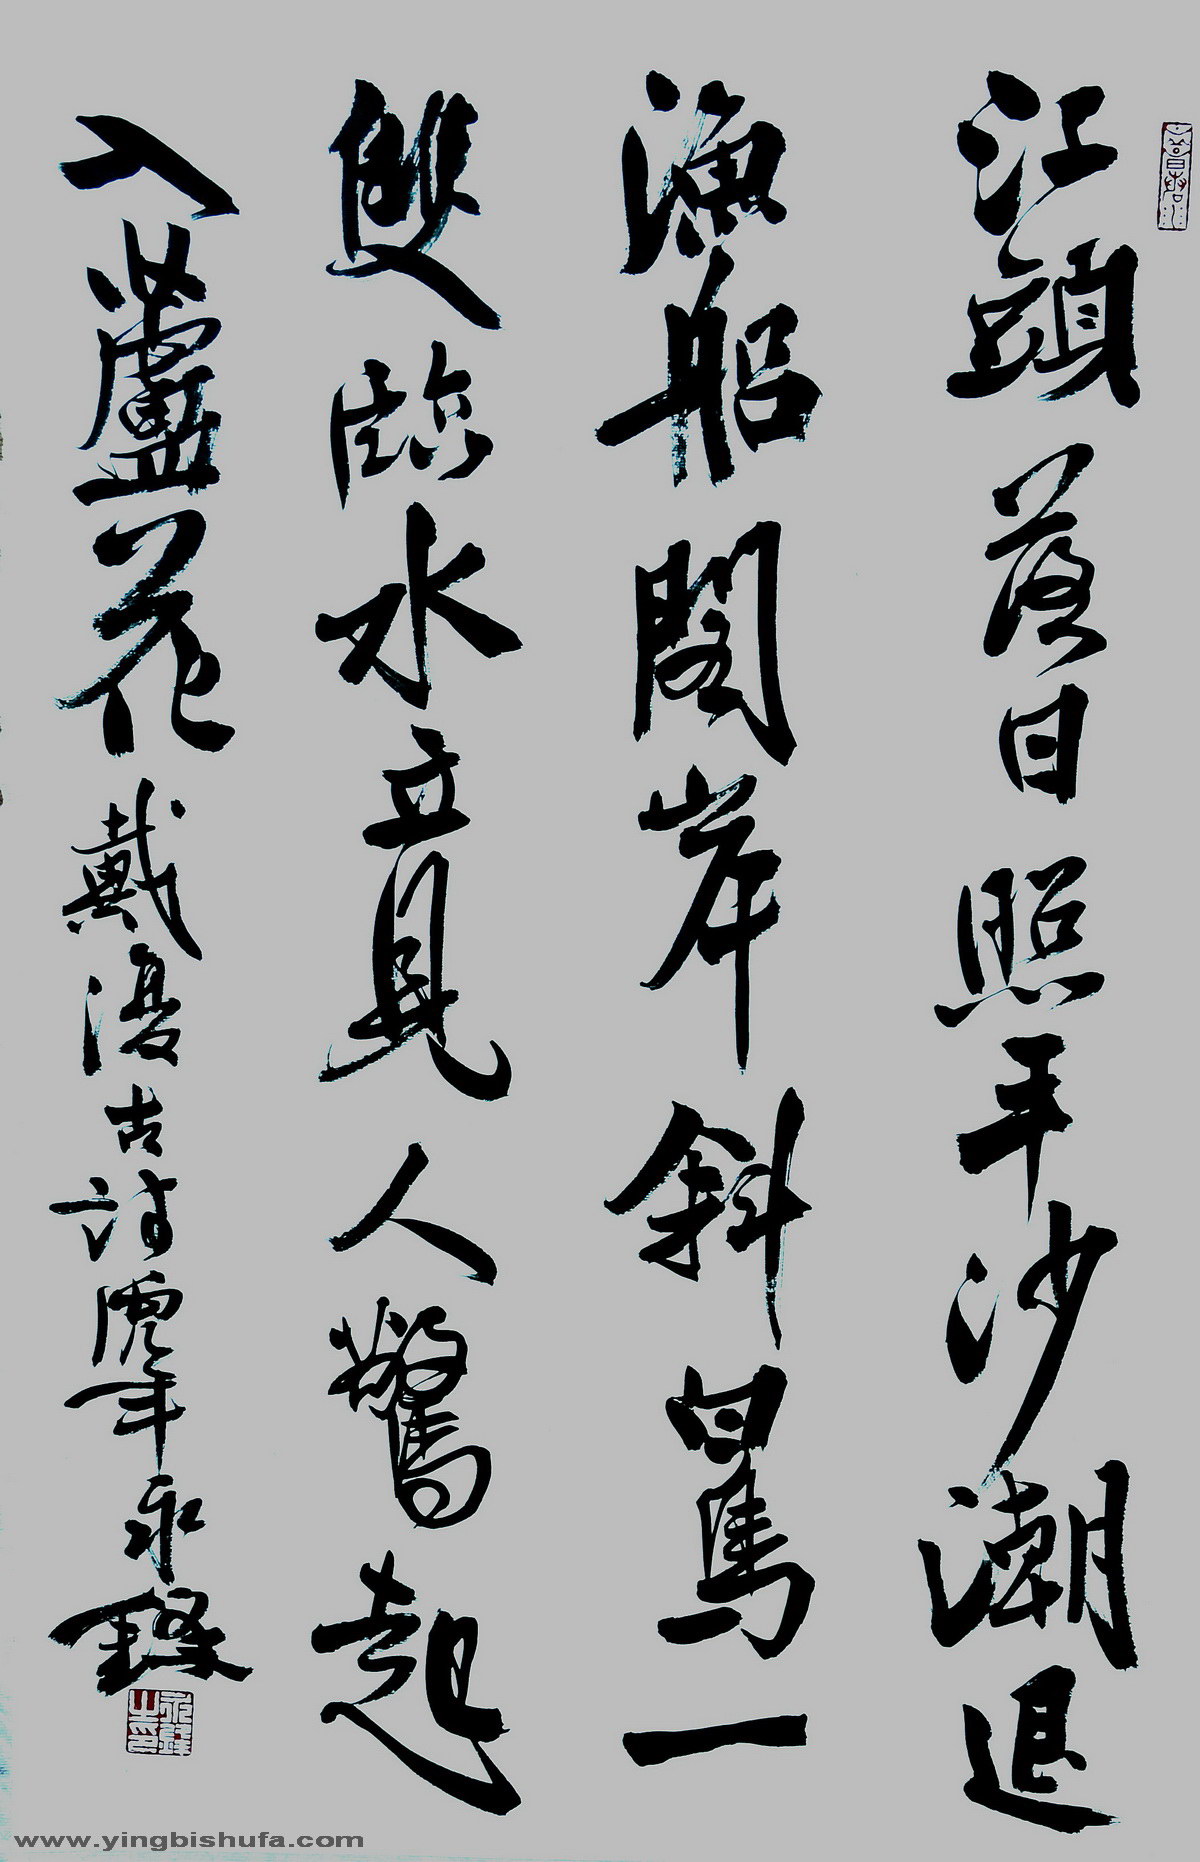 江頭落日照平沙潮退
漁船閣岸斜白鳥一
雙臨水立見人驚起
入蘆花戴復古詩虎年永鋒
www.yingbishufa.com